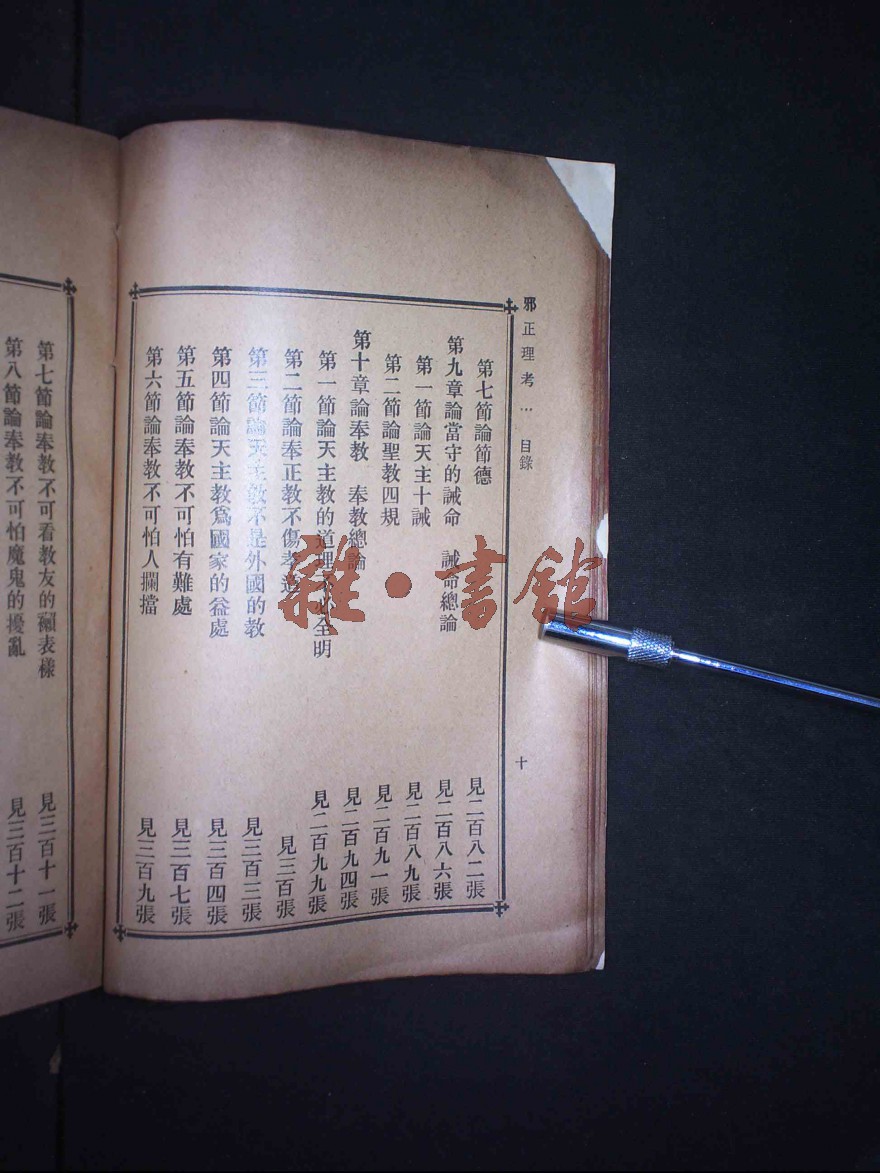 邪正理考… 目錄 十
第七節論節德 見二百八二張
第九章論當守的誡命 誡命總論 見二百八六張
第一節論天主十誡 見二百八九張
第二節論聖教四規 見二百九一張
第十章論奉教 奉教總論 見二百九四張
第一節論天主教的道理不必全明 見二百九九張
第二節論奉正教不傷孝道 見三百張
第三節論天主教不是外國的教 見三百三張
第四節論天主教爲國家的益處 見三百四張
第五節論奉教不可怕有難處 見三百七張
第六節論奉教不可怕人攔擋 見三百九張
第七節論奉教不可看教友的表樣 見三百十一張
第八節論奉教不可怕魔鬼的擾亂 見三百十二張
雜·書館